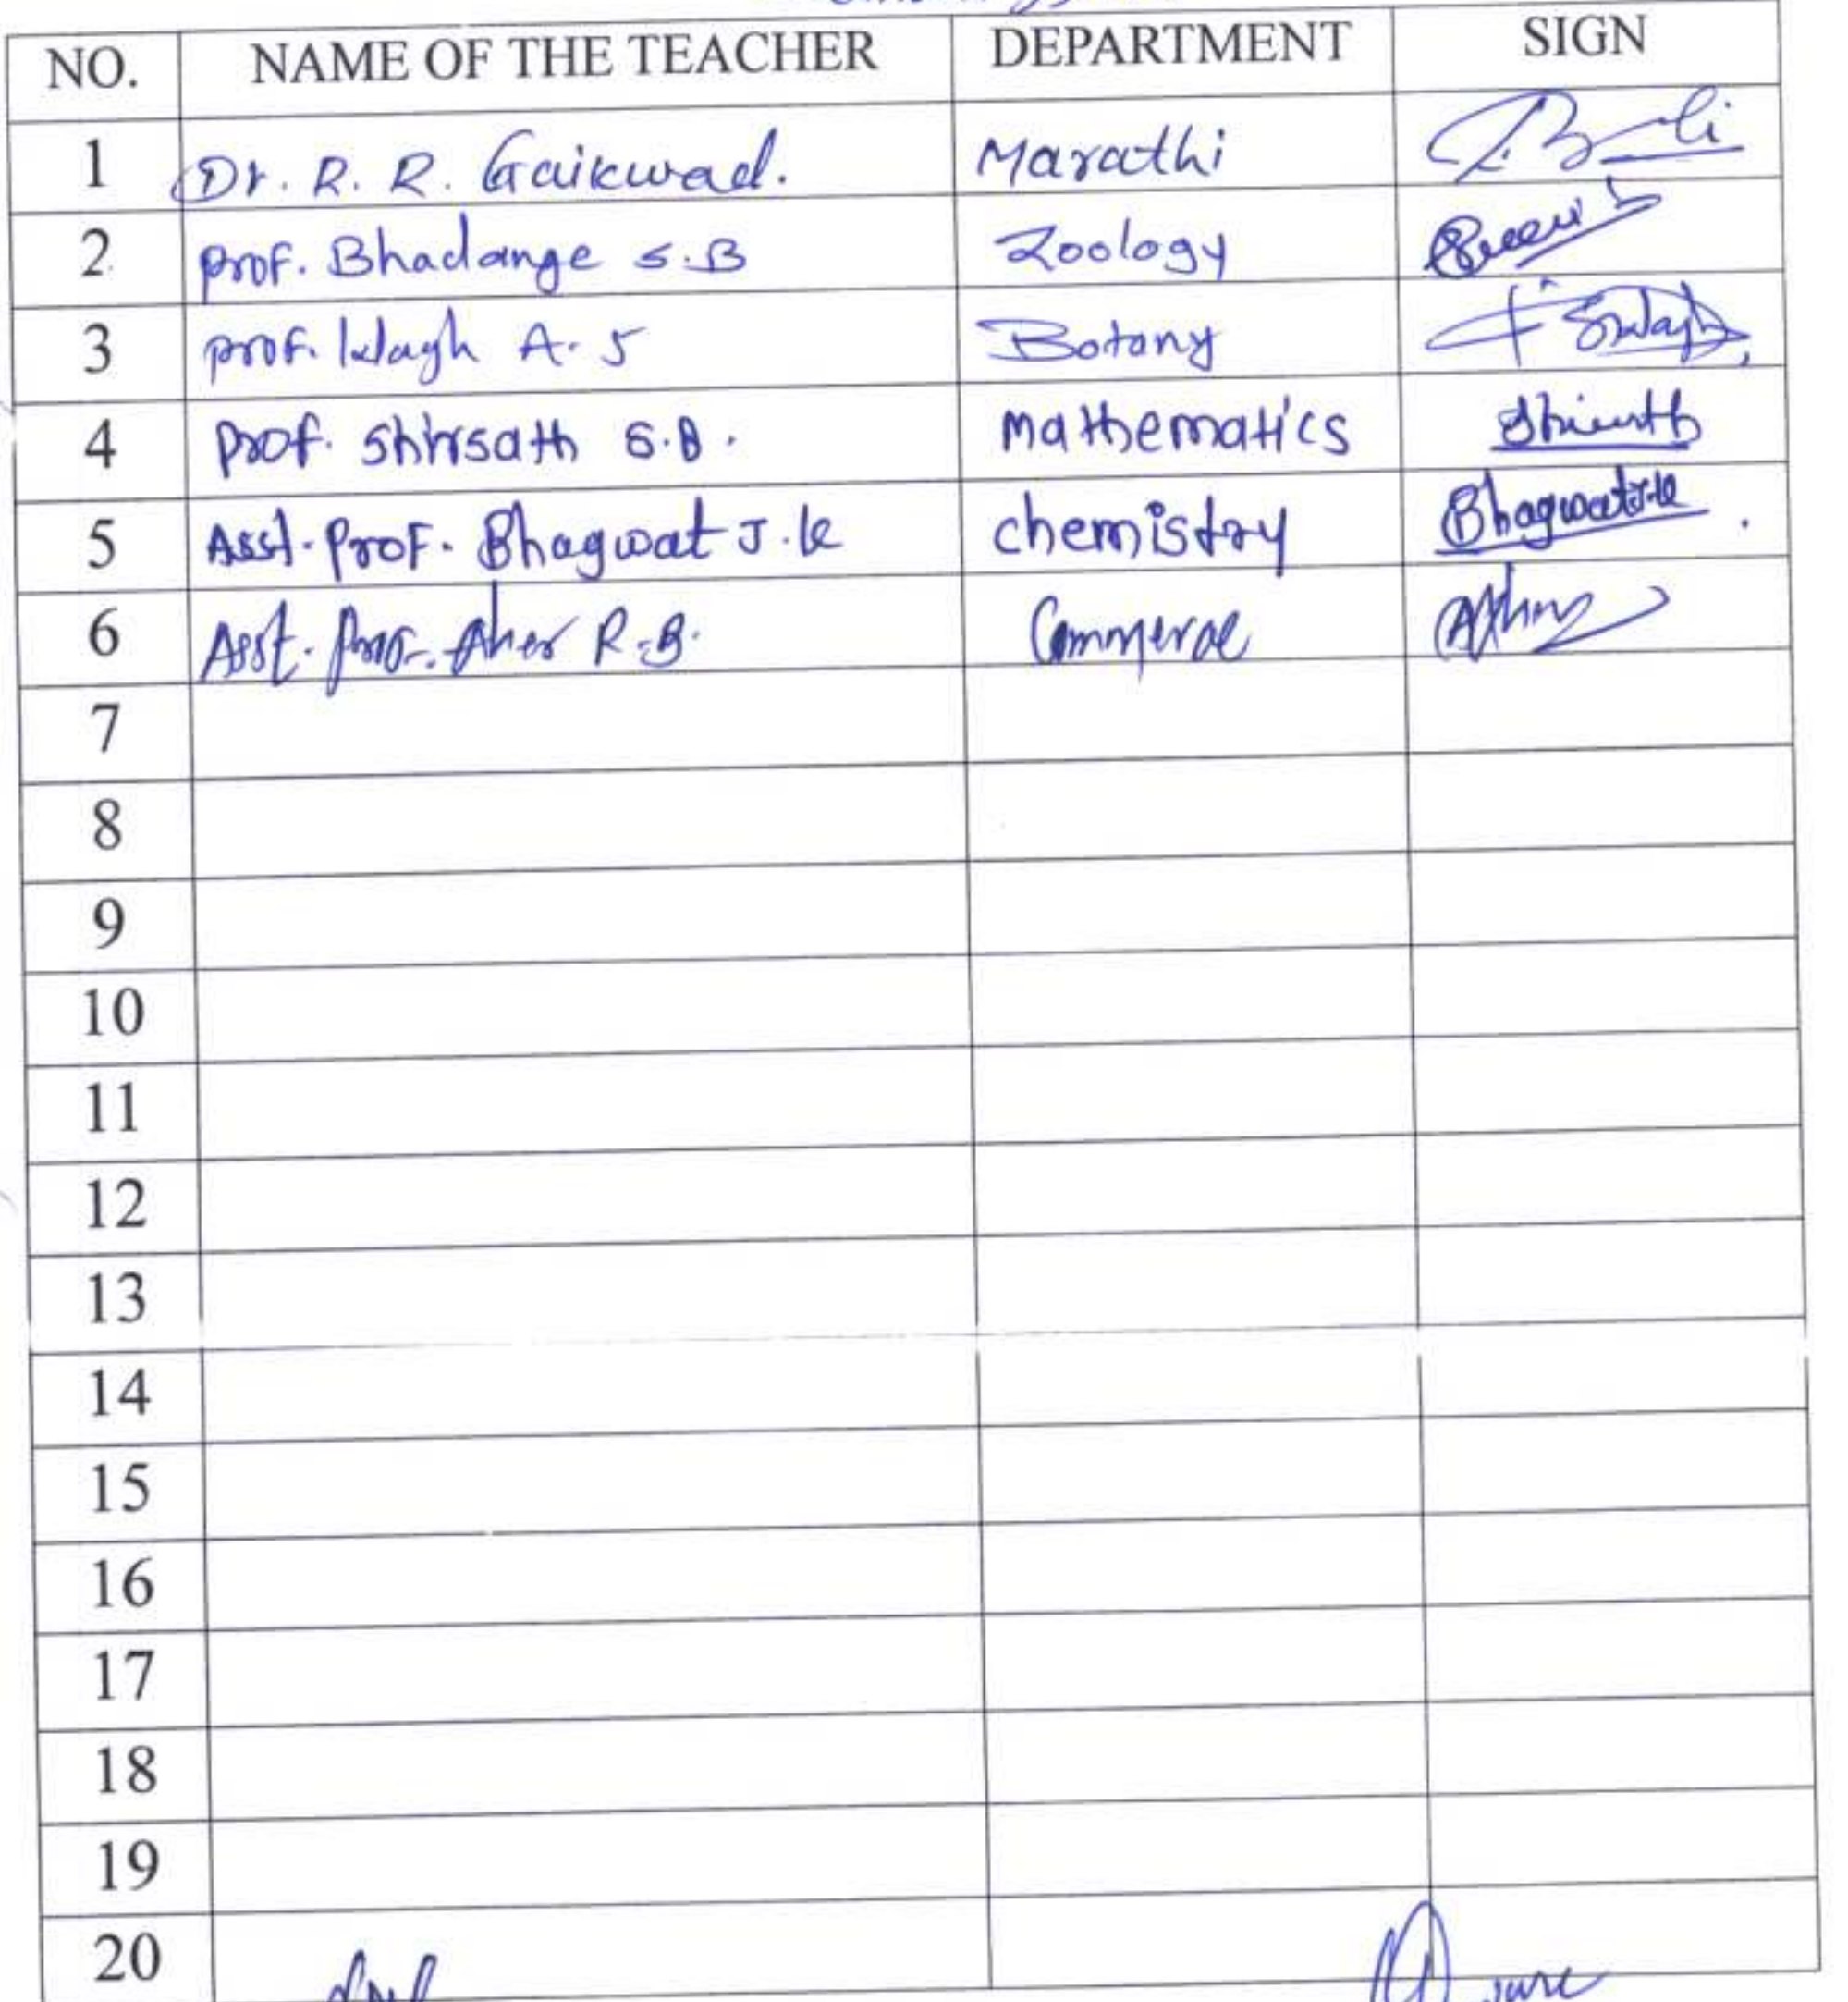 NO. NAME OF THE TEACHER DEPARTMENT SIGN
1 Dr. R. R. Gaikwad. Marathi
2 Prof. Bhadange S.B Zoology
3 Prof. Wagh A. S Botany
4 Prof. Shirsath S.B. Mathematics
5 Asst. Prof. Bhagwat J.K chemistry Bhagwat J.K
6 Asst. Prof. Aher R.B. Commerce
7
8
9
10
11
12
13
14
15
16
17
18
19
20